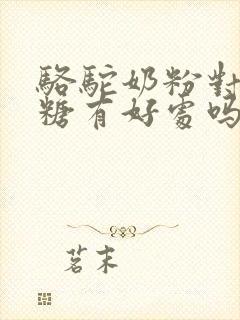 駱駝奶粉對
糖有好處嗎
茗末